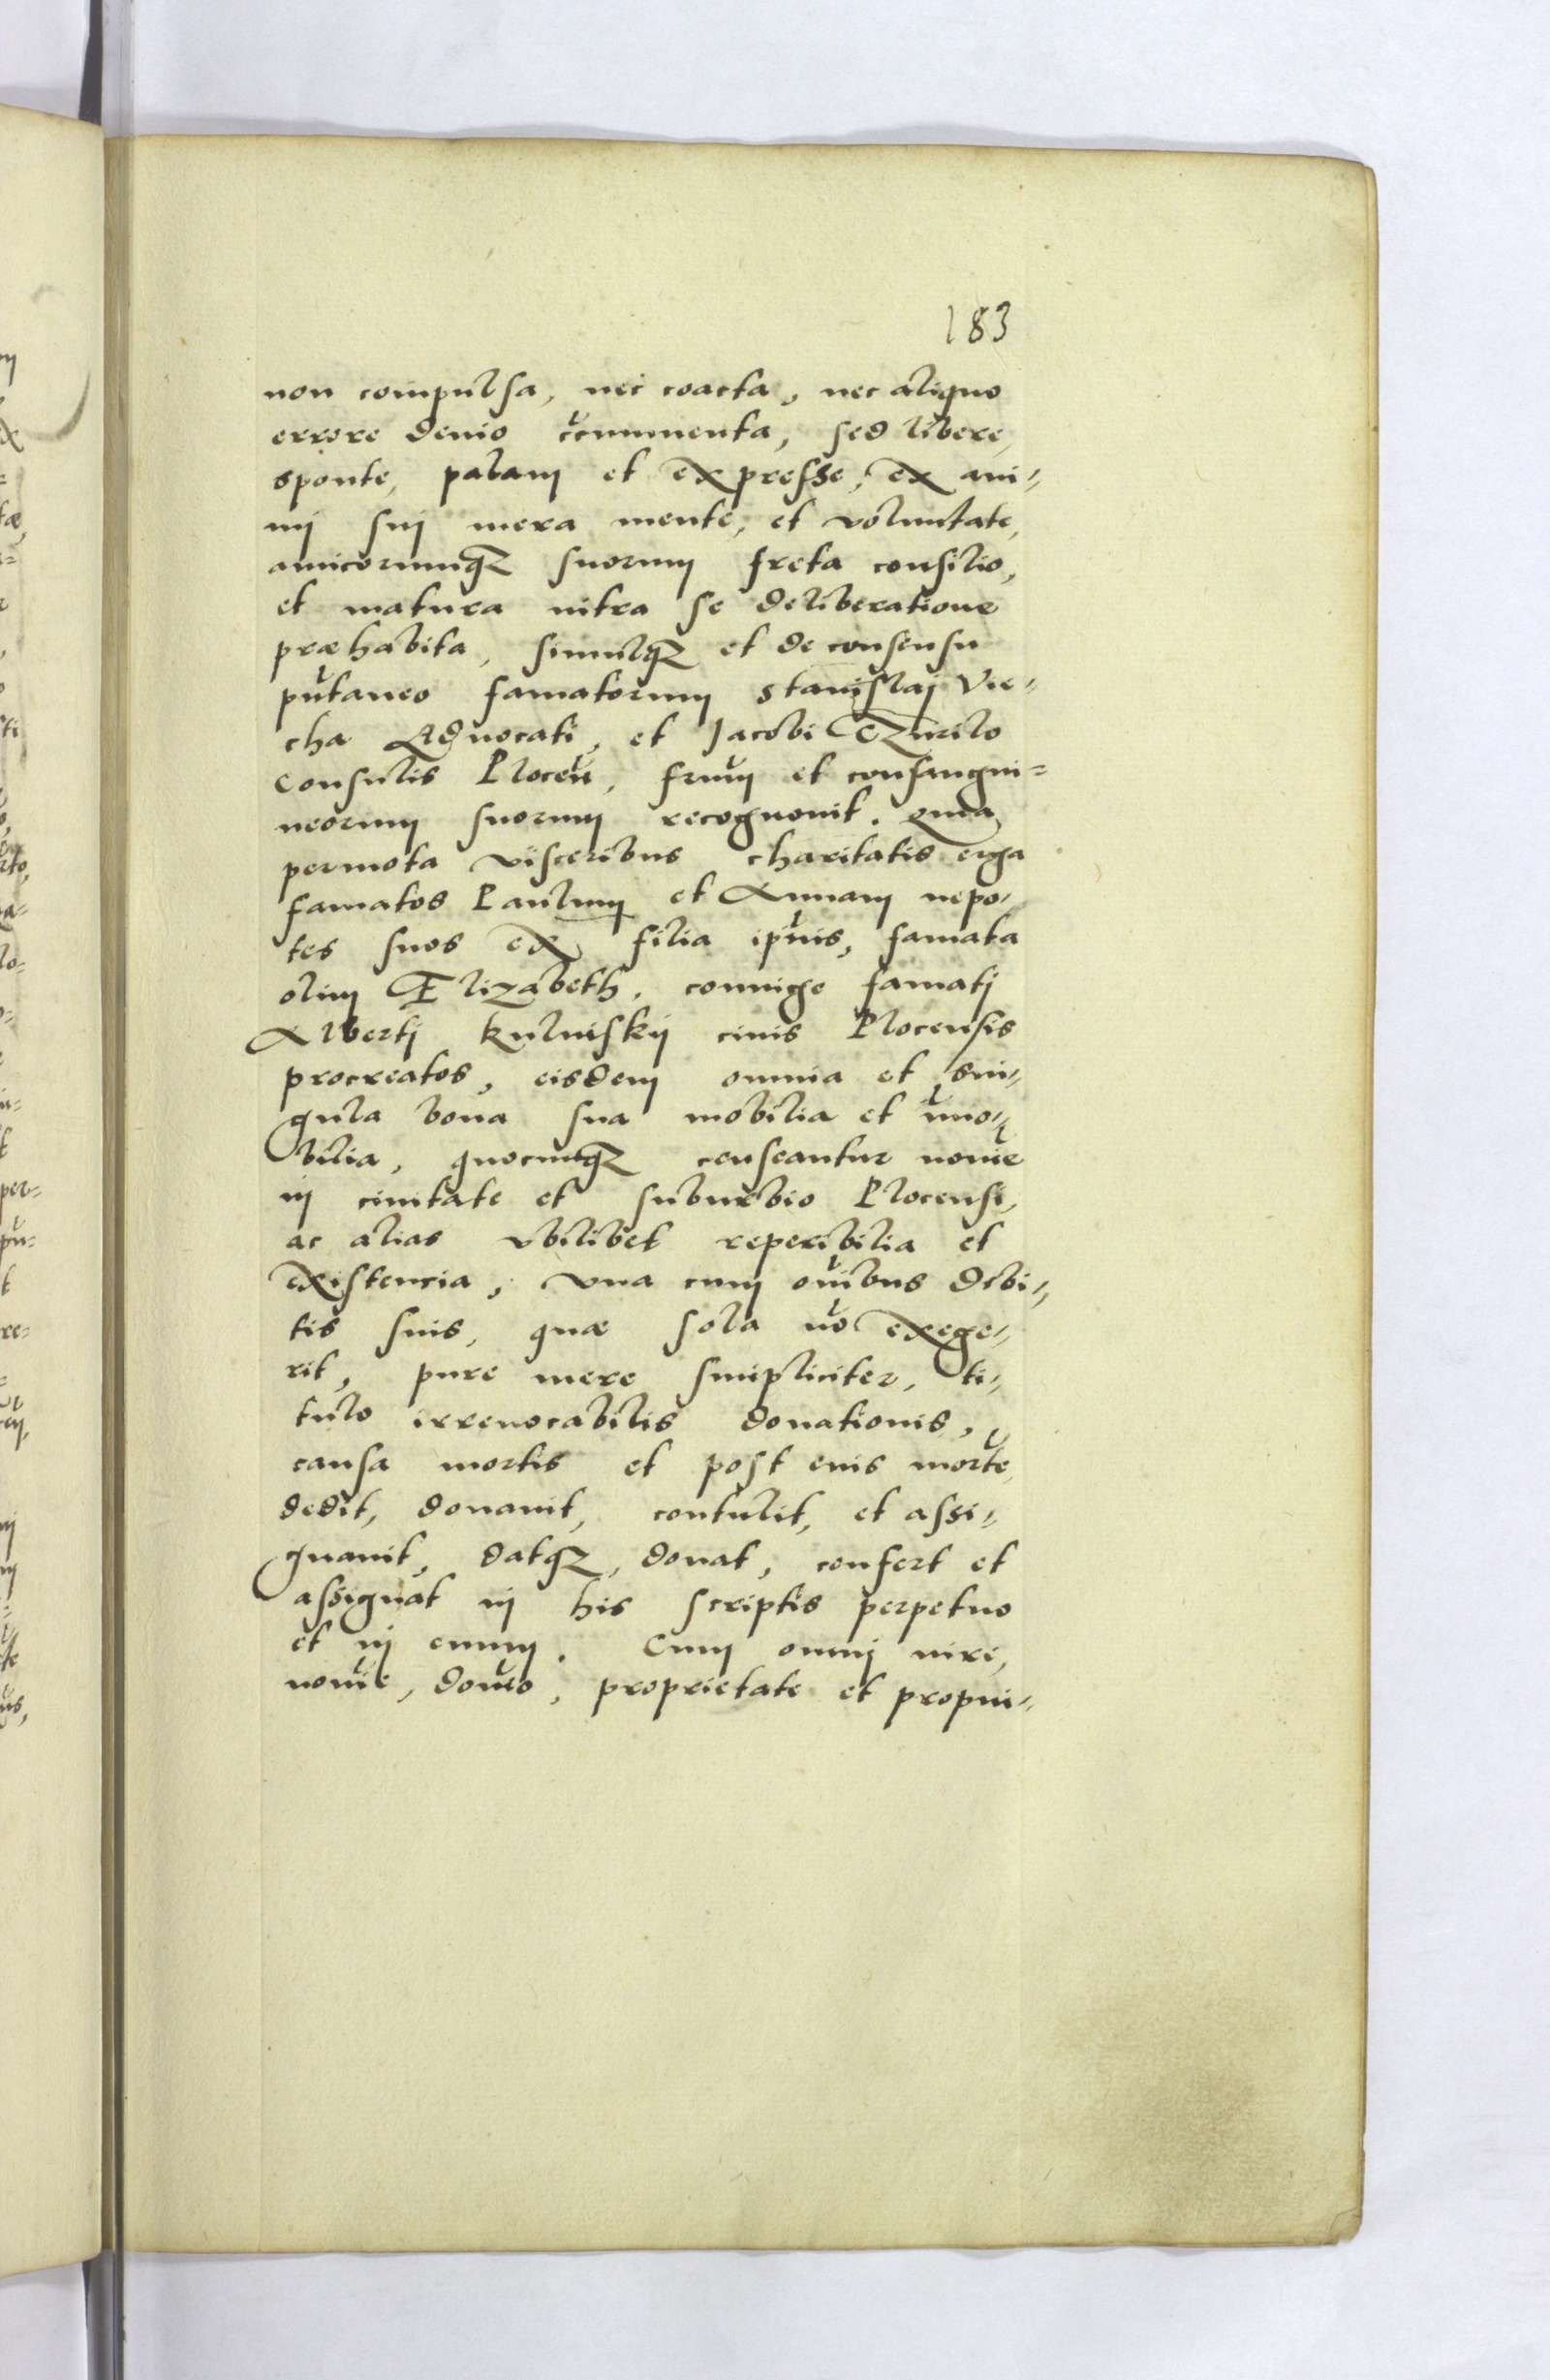 183
non compulsa, nec coacta, nec aliquo
errore devio circumuenta, sed libere,
sponte, palam et expresse, ex ani=
mj suj mera mente, et voluntate,
amicorumq3 suorum freta consilio,
et matura intra se deliberatione
præhabita, simulq3 et de consensu
putaneo famatorum Stanislaj Vie=
cha Aduocati, et Jacobi
Consulis Plocen, frum et consangui=
neorum suorum recognouit. Quia
permota visceribus charitatis erga
famatos Paulum et Annam nepo=
tes suos ex filia ipius, famata
olim Elizabeth, coniuge famatj
Albertj Kulinskij ciuis Plocensis
procreatos, eisdem omnia et sin=
gula bona sua mobilia et imo=
bilia, quocunq3 censeantur noie
in ciuitate et suburbio Plocensi,
ac alias vbilibet reperibilia et
existencia, vna cum oibus debi=
tis suis, quæ sola no exege=
rit, pure mere simpliciter, ti=
tulo irreuocabilis donationis,
causa mortis et post eius morte
dedit, donauit, contulit, et assi=
gnauit, datq3, donat, confert et
assignat in his scriptis perpetuo
et in euum. Cum omnj iure,
noie, domio, proprietate et propin=